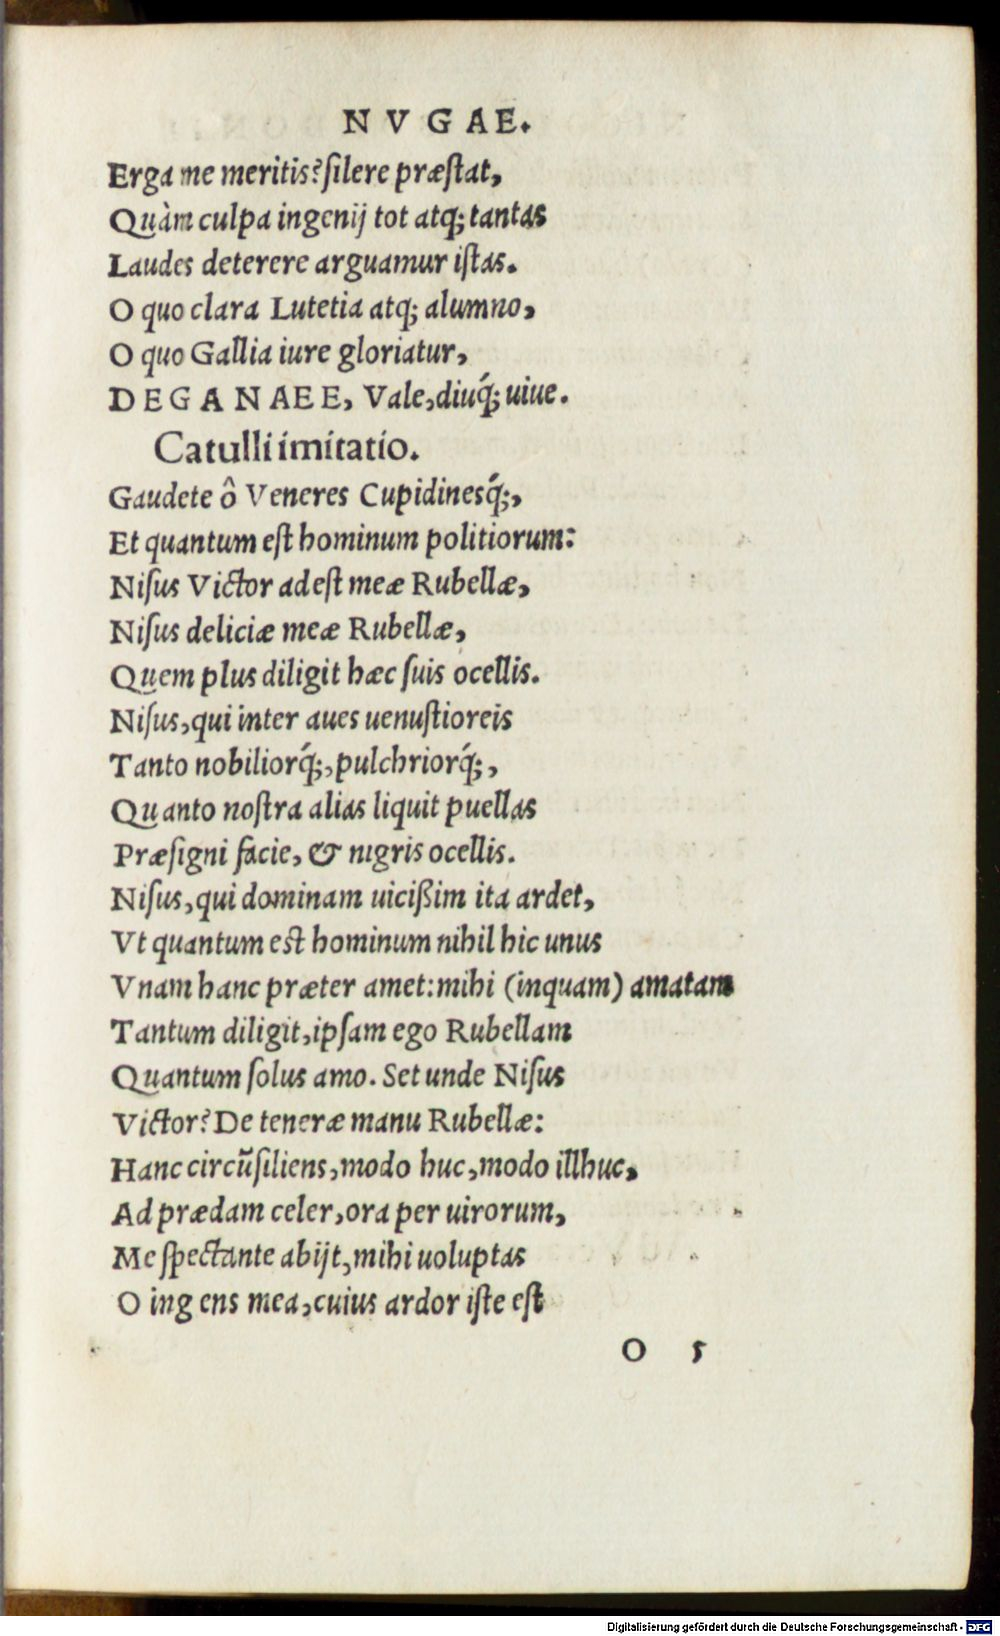 NVGAE.
Erga me meritis? silere præstat,
Quàm culpa ingenij tot atq; tantas
Laudes deterere arguamur istas.
O quo clara Lutetia atq; alumno,
O quo Gallia iure gloriatur,
DEGANAEE, Vale, diuq́; uiue.
Catulli imitatio.
Gaudete ô Veneres Cupidinesq́;,
Et quantum est hominum politiorum:
Nisus Victor adest meæ Rubellæ,
Nisus deliciæ meæ Rubellæ,
Quem plus diligit hæc suis ocellis.
Nisus, qui inter aues uenustioreis
Tanto nobiliorq́;, pulchriorq́;,
Quanto nostra alias liquit puellas
Præsigni facie, & nigris ocellis.
Nisus, qui dominam uicißim ita ardet,
Vt quantum est hominum nihil hic unus
Vnam hanc præter amet: mihi (inquam) amatam
Tantum diligit, ipsam ego Rubellam
Quantum solus amo. Set unde Nisus
Victor? De teneræ manu Rubellæ:
Hanc circũsiliens, modo huc, modo illhuc,
Ad prædam celer, ora per uirorum,
Me spectante abijt, mihi uoluptas
O ingens mea, cuius ardor iste est
O 5
Digitalisierung gefördert durch die Deutsche Forschungsgemeinschaft - DFG